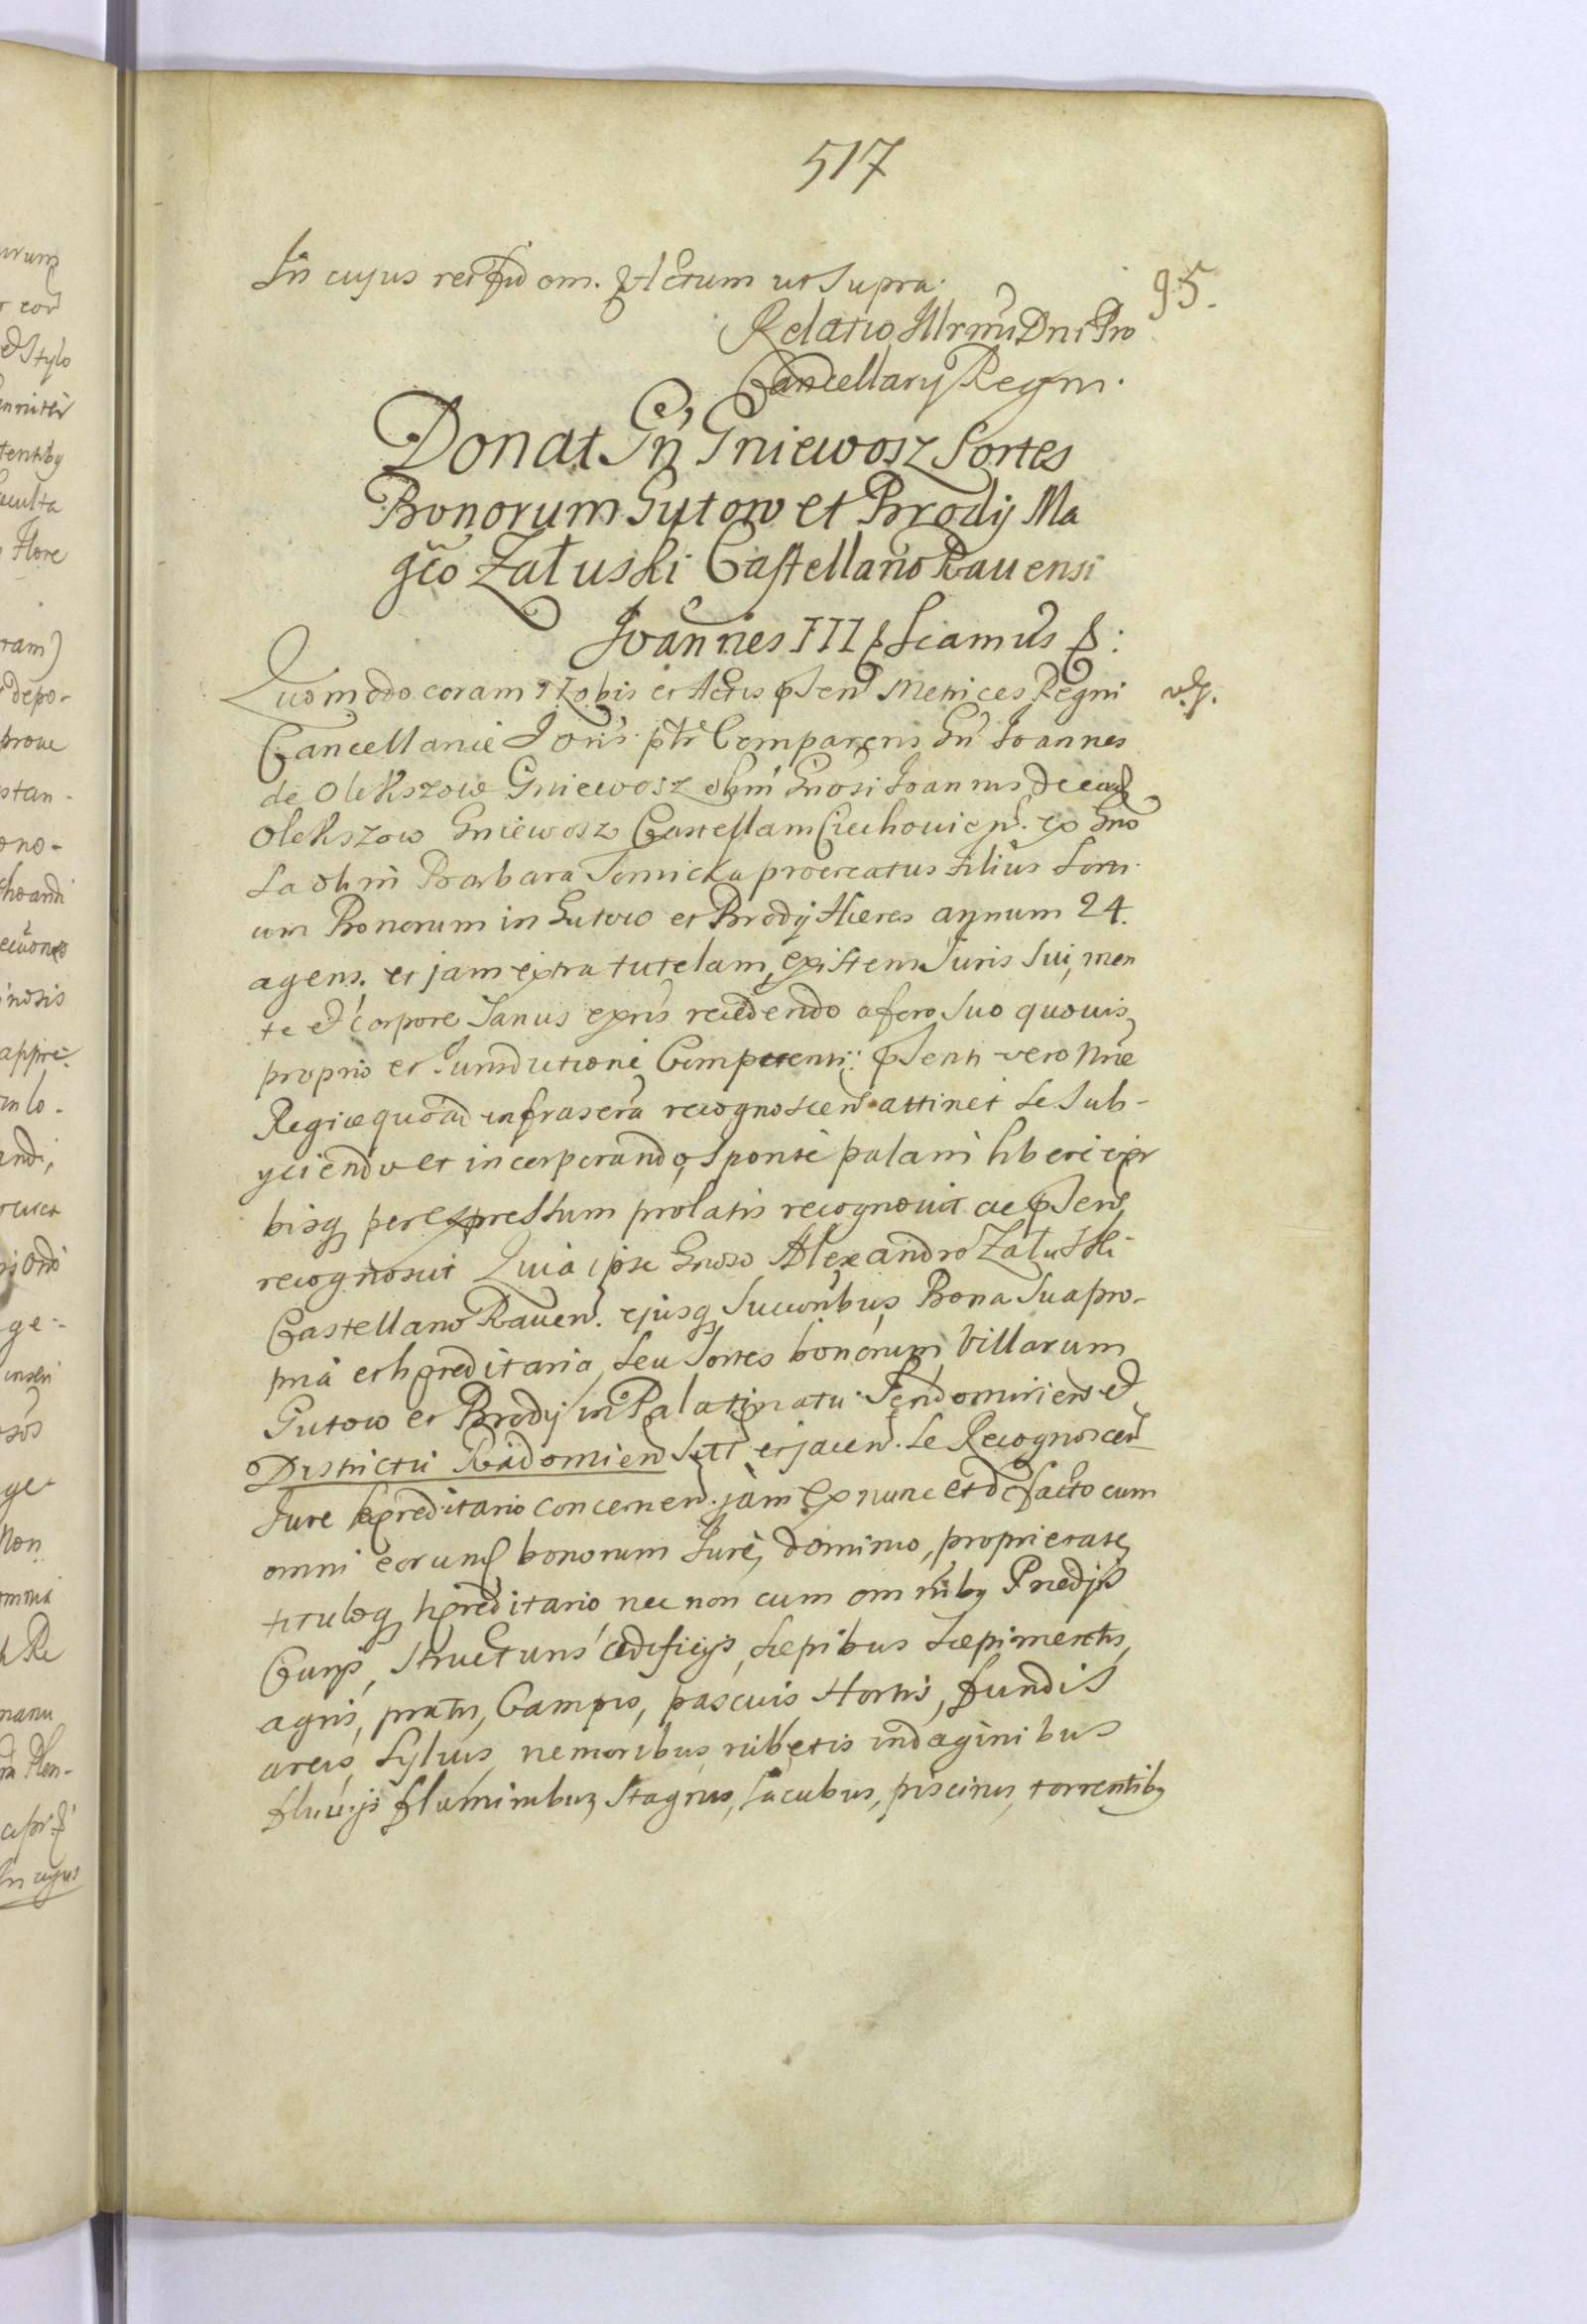 517
In cujus rei fid om. Actum ut Supra.
95.
Relatio Illrmi Dni Pro
Cancellarij Regni.
Donat Gn Gniewosz Sortes
Bonorum Gutow et Brody Ma
gco Załuski Castellano Rauensi
Joannes III Sciamus
Quomodo coram Nobis et Actis pnsen Metrices Regni
Cancellariæ Joris ptr Comparens Gn Joannes
de Olekszow Gniewosz olim Gnosi Joannis de ead
Olekszow Gniewosz Castellani Czechouien. ex Gno
sa olim Barbara Tomicka procreatus filius Sorti
um Bonorum in Gutow et Brody Hæres annum 24.
agens. et jam extra tutelam, existens Juris Sui, men
te et corpore Sanus exns recedendo a foro Suo quouis
proprio et Jurisdictione Competenti: pnsenti vero Nræ
Regiæ quoad infrascra recognoscen attinet se Sub-
yciendo et incorporando, Sponte palam libere
bisq per expressum prolatis recognouit ac pnsen
recognoscit Quia ipse Gnoso Alexandro Załuski
Castellano Rauen. ejusq Successoribus Bona Sua pro-
pria et hæreditaria, seu Sortes bonorum Villarum
Gutow et Brody in Palatinatu Sendomirien et
Districtu Radomien sitt et jacen. Se Recognoscen
Jure hæreditario concernen. jam ex nunc et de facto cum
omni eorund bonorum Jure, dominio, proprietate,
tituloq hæreditario nec non cum omnibq Prædijs
Curijs, structuris ædificijs, sepibus sepimentis,
agris, pratis, Campis, pascuis Hortis, fundis
areis, Syluis, nemoribus rubetis indaginibus
fluuijs fluminibus, Stagnis, lacubus, piscinis, torrentibq